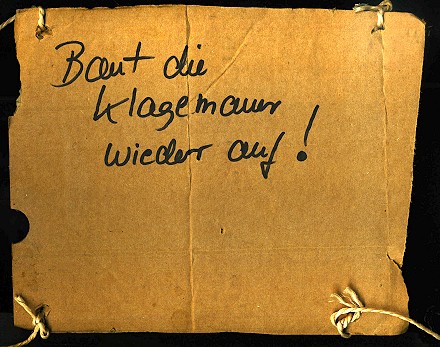 Baut die
Klagemauer
wieder auf!